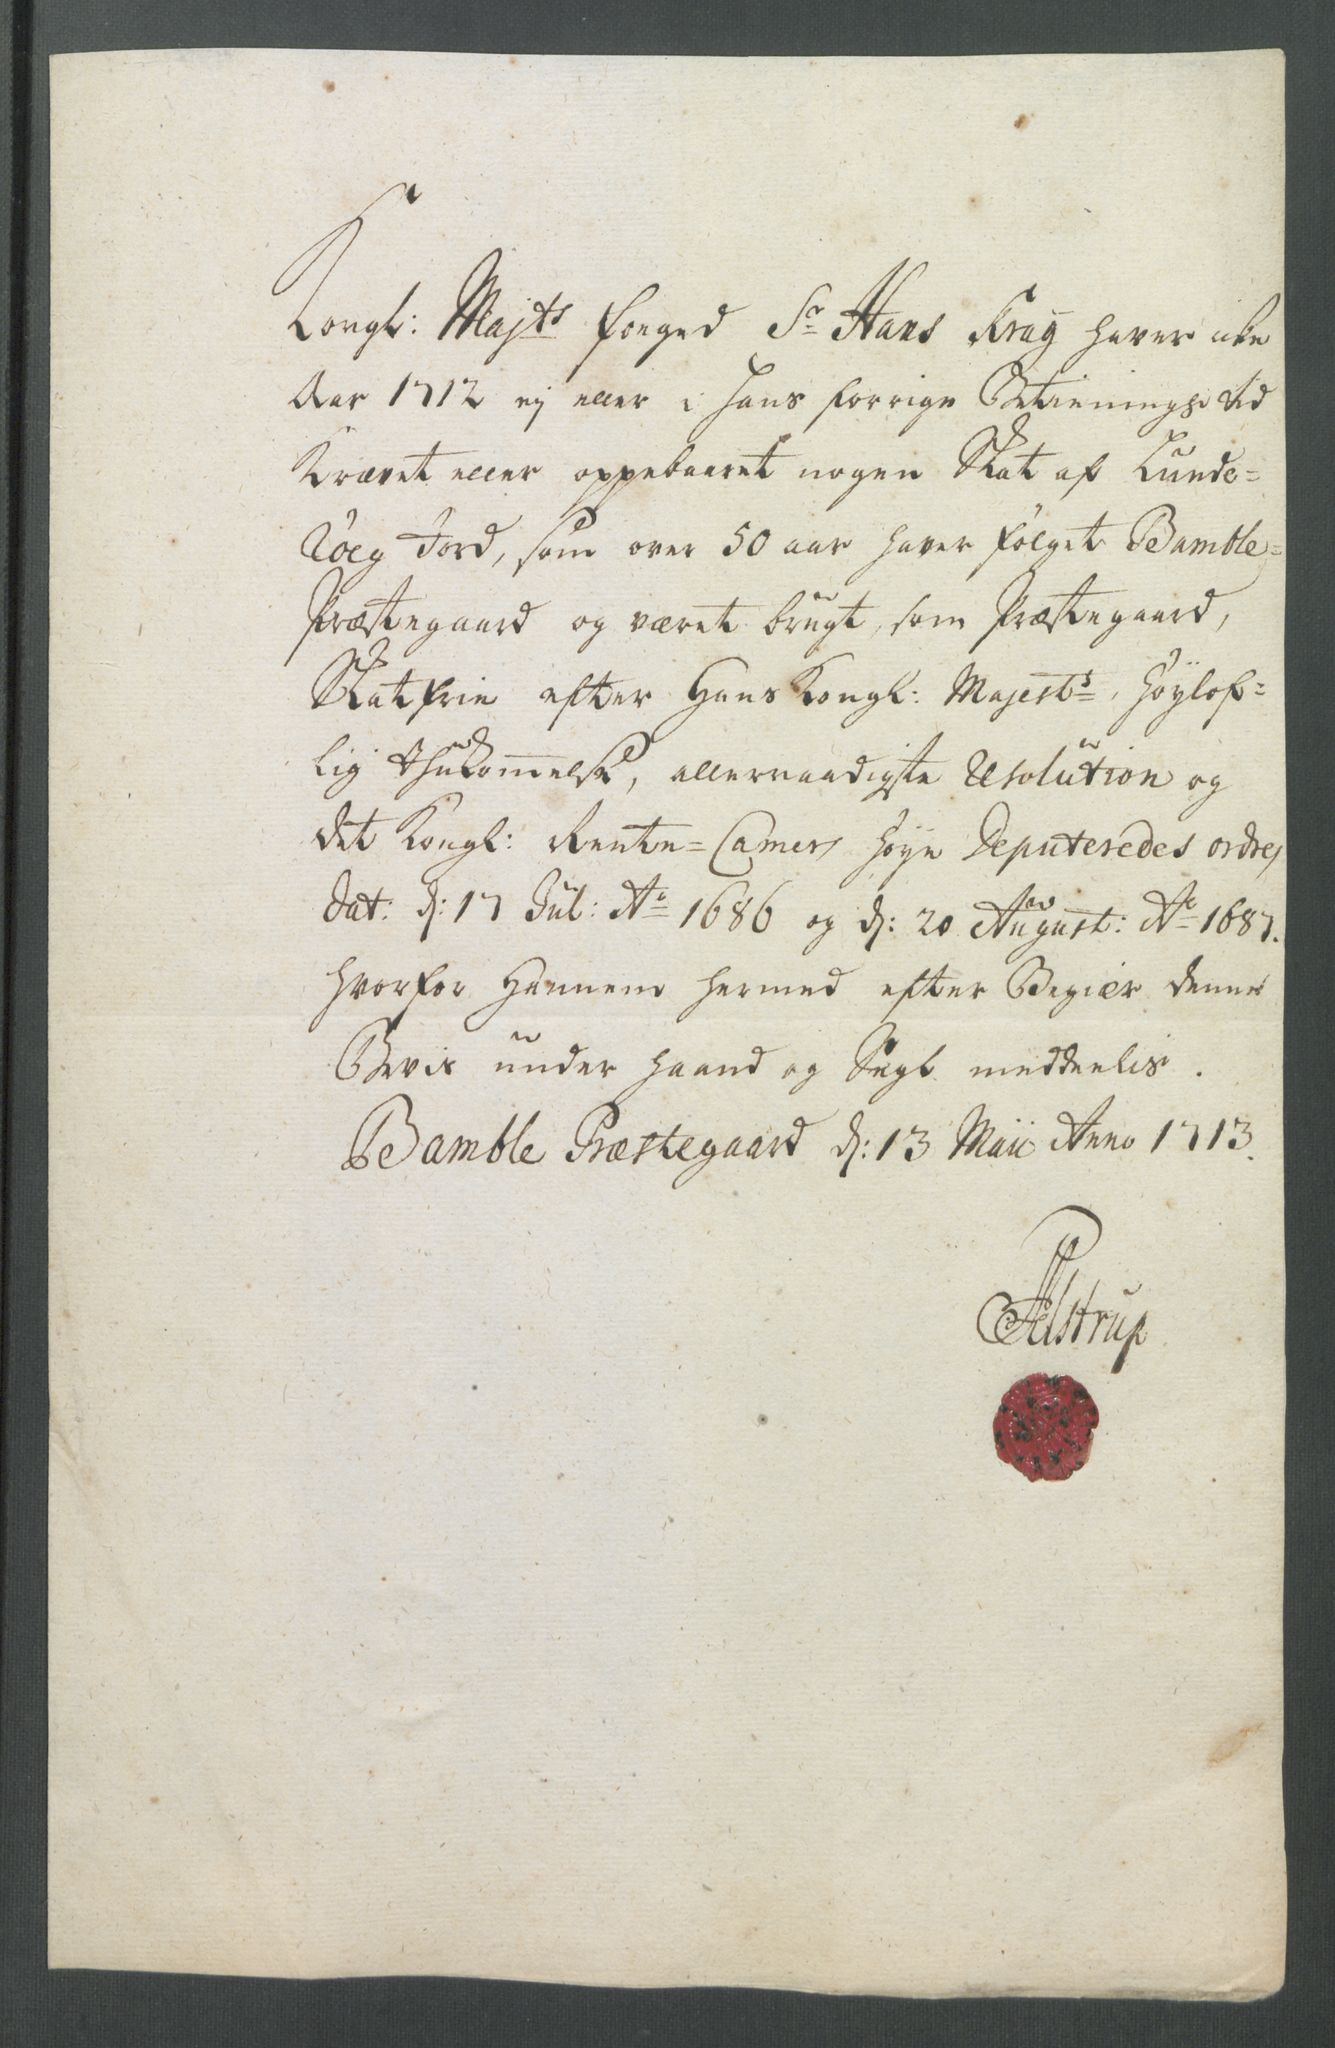 Kongl: Majts foeged Sr Hans Krag haver icke
Aar 1712 ej eller i hans forrige Betienings tid
Krævet eller oppebaaret nogen Skat af Lunde=
Jord, som over 50 aar haver følget Bamble=
Præstegaard og været brugt, som Præstegaard,
Skatfrie efter Hans Kongl: Majests höylof=
lig Ihukommelse, allernaadigste Resolution og
det Kongl: Rente=Camers höye Deputeredes ordre,
dat: d: 17 Jul: Ao 1686 og d: 20 August: Ao 1687.
hvorfor Hannem hermed efter Begiær denne
Bevis under haand og Segl meddeelis.
Bamble Præstegaard d: 13 Maii Anno 1713.
Alstrup